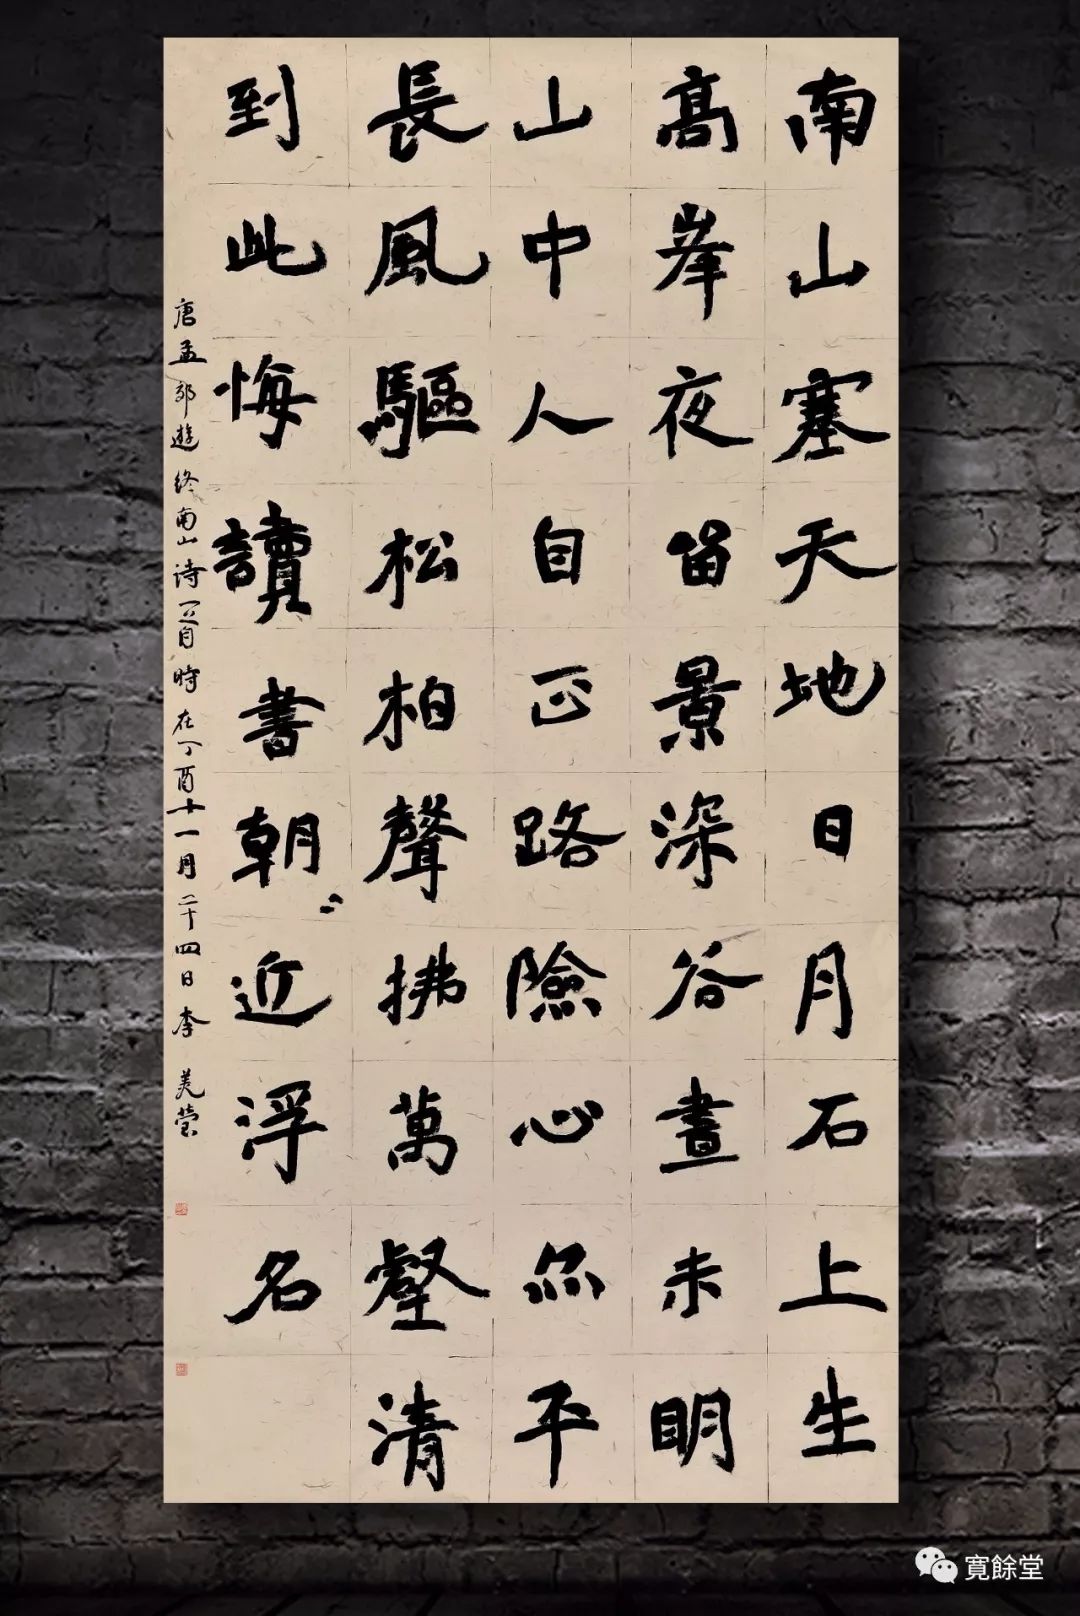 南山塞天地日月石上生
髙峯夜留景深谷晝未明
山中人自正路險心亦平
長風驅松柏聲拂萬壑清
到此悔讀書朝〻近浮名
唐孟郊遊終南山诗一首時在丁酉十一月二十四日李美莹
寬餘堂